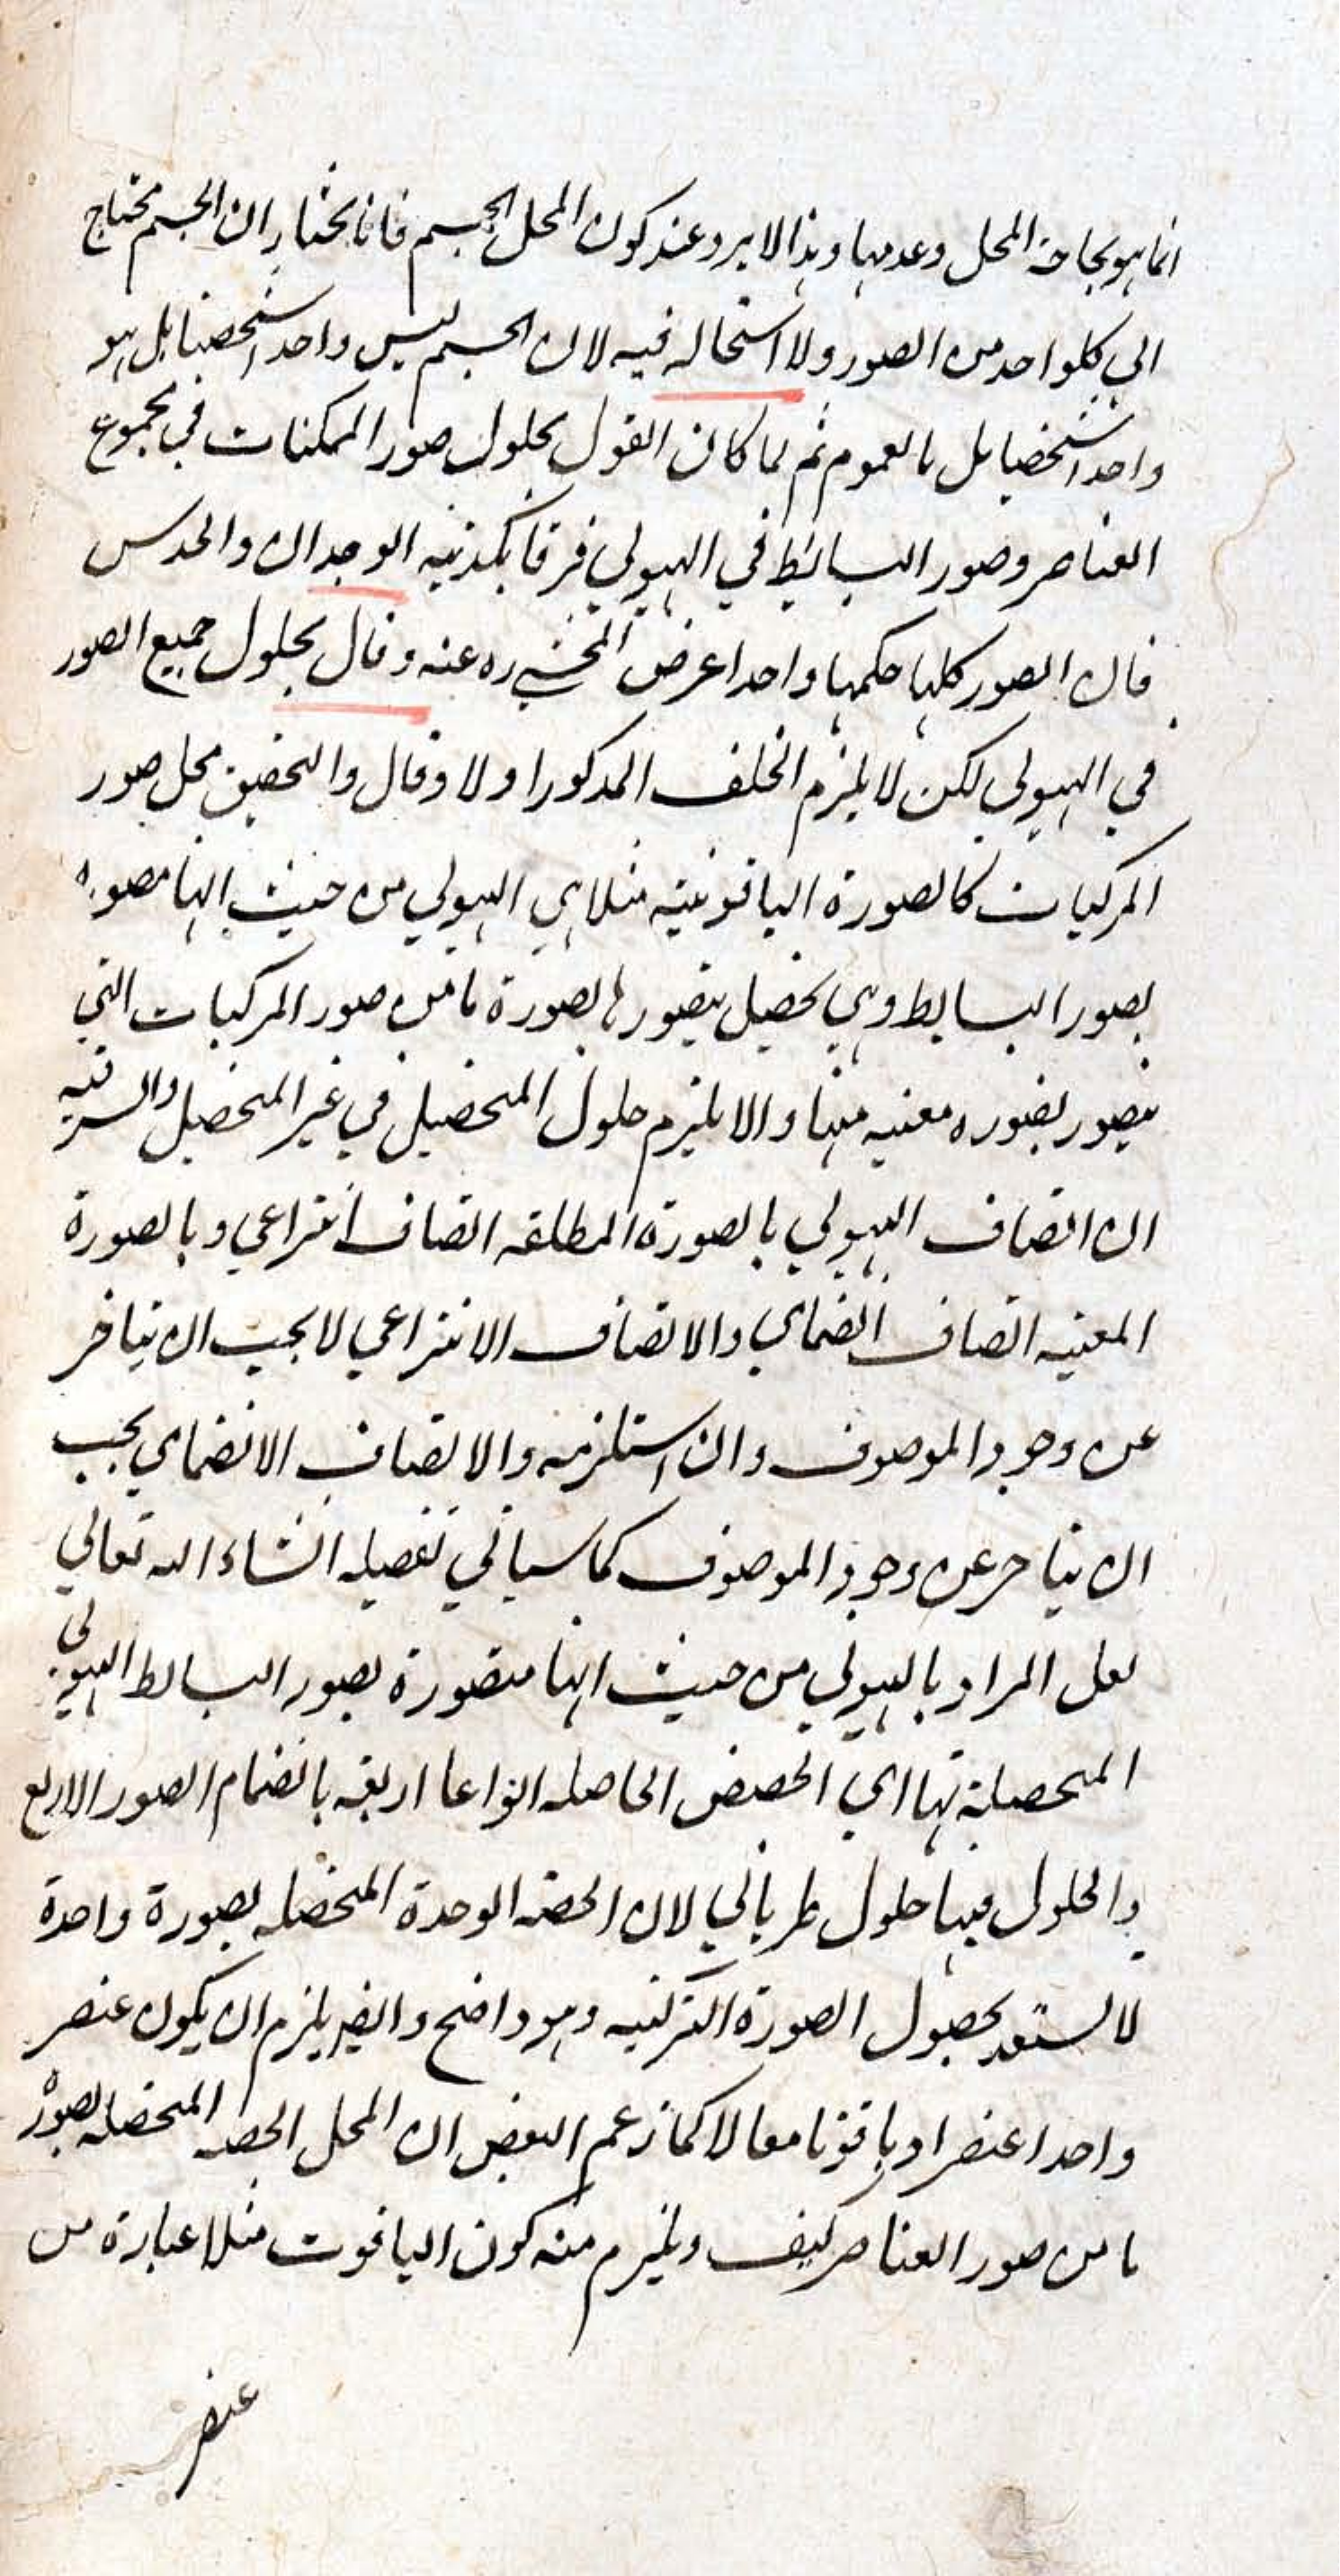 انما هو بحاجة المحل وعدمها وهذا لا يرد عند كون المحل الجسم فانا نختار ان الجسم محتاج
الي كلواحد من الصور ولا استحاله فيه لان الجسم ليس واحدا شخصيا بل هو
واحدا شخصيا بل بالعموم ثم لما كان القول بحلول صور الممكنات في مجموع
العناصر وصور البسائط في الهيولي فرقا يكذبه الوجدان والحدس
فان الصور كلها حكمها واحدا عرض المحشي ره عنه وقال بحلول جميع الصور
في الهيولي لكن لا يلزم الخلف المذكور اولا وقال والتحقيق محل صور
المركبات كالصورة الياقوتيه مثلا هي الهيولي من حيث انها مصوره
بصور البسايط وهي تحصيل بتصورها بصورة ما من صور المركبات التي
بتصور بصوره معينه منها والا يلزم حلول المتحصل في غير المتحصل والسر فيه
ان اتصاف الهيولي بالصورة المطلقه اتصاف انتزاعي وبالصورة
المعينه اتصاف انضمامي والاتصاف الانتزاعي لا يجب ان يتاخر
عن وجود الموصوف وان استلزمه والاتصاف الانضمامي يجب
ان يتاخر عن وجود الموصوف كما سياتي تفصيله انشاء الله تعالي
لعل المراد بالهيولي من حيث انها متصورة بصور البسائط الهيولي
المتحصلة بها اي الحصص الحاصله انواعا اربعه بانضمام الصور الاربع
والحلول فيها حلول طرياني لان الحصه الوحدة المتحصله بصورة واحدة
لا تستعد بحصول الصورة التركيبيه وهو واضح وايضا يلزم ان يكون عنصر
واحدا عنصرا وياقوتا معا لا كما زعم البعض ان المحل الحصه المتحصله بصورة
ما من صور العناصر كيف ويلزم منه كون الياقوت مثلا عبارة من
عنصر